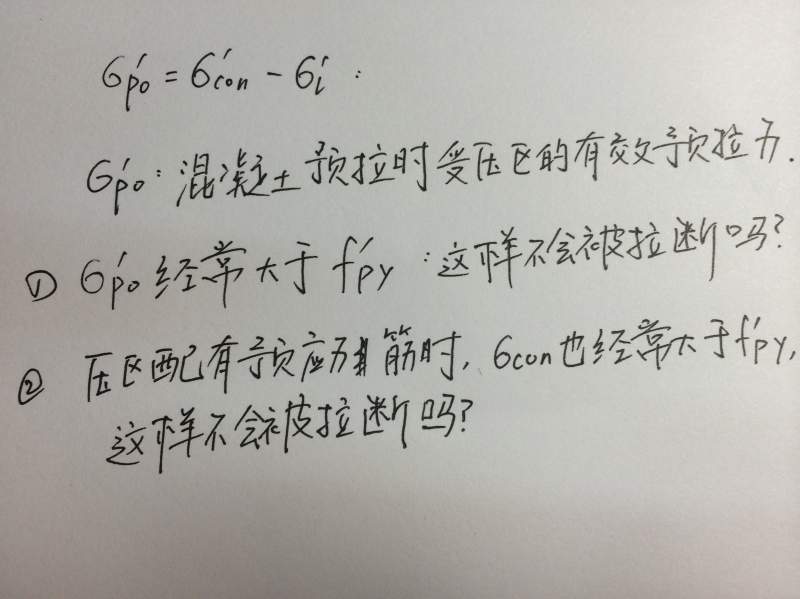 σ'p0 = σ'con - σ'l :
σ'p0: 混凝土预拉时受压区的有效预拉力.
① σ'p0 经常大于 f'py : 这样不会被拉断吗?
② 压区配有预应力筋时, σcon也经常大于f'py,
这样不会被拉断吗?